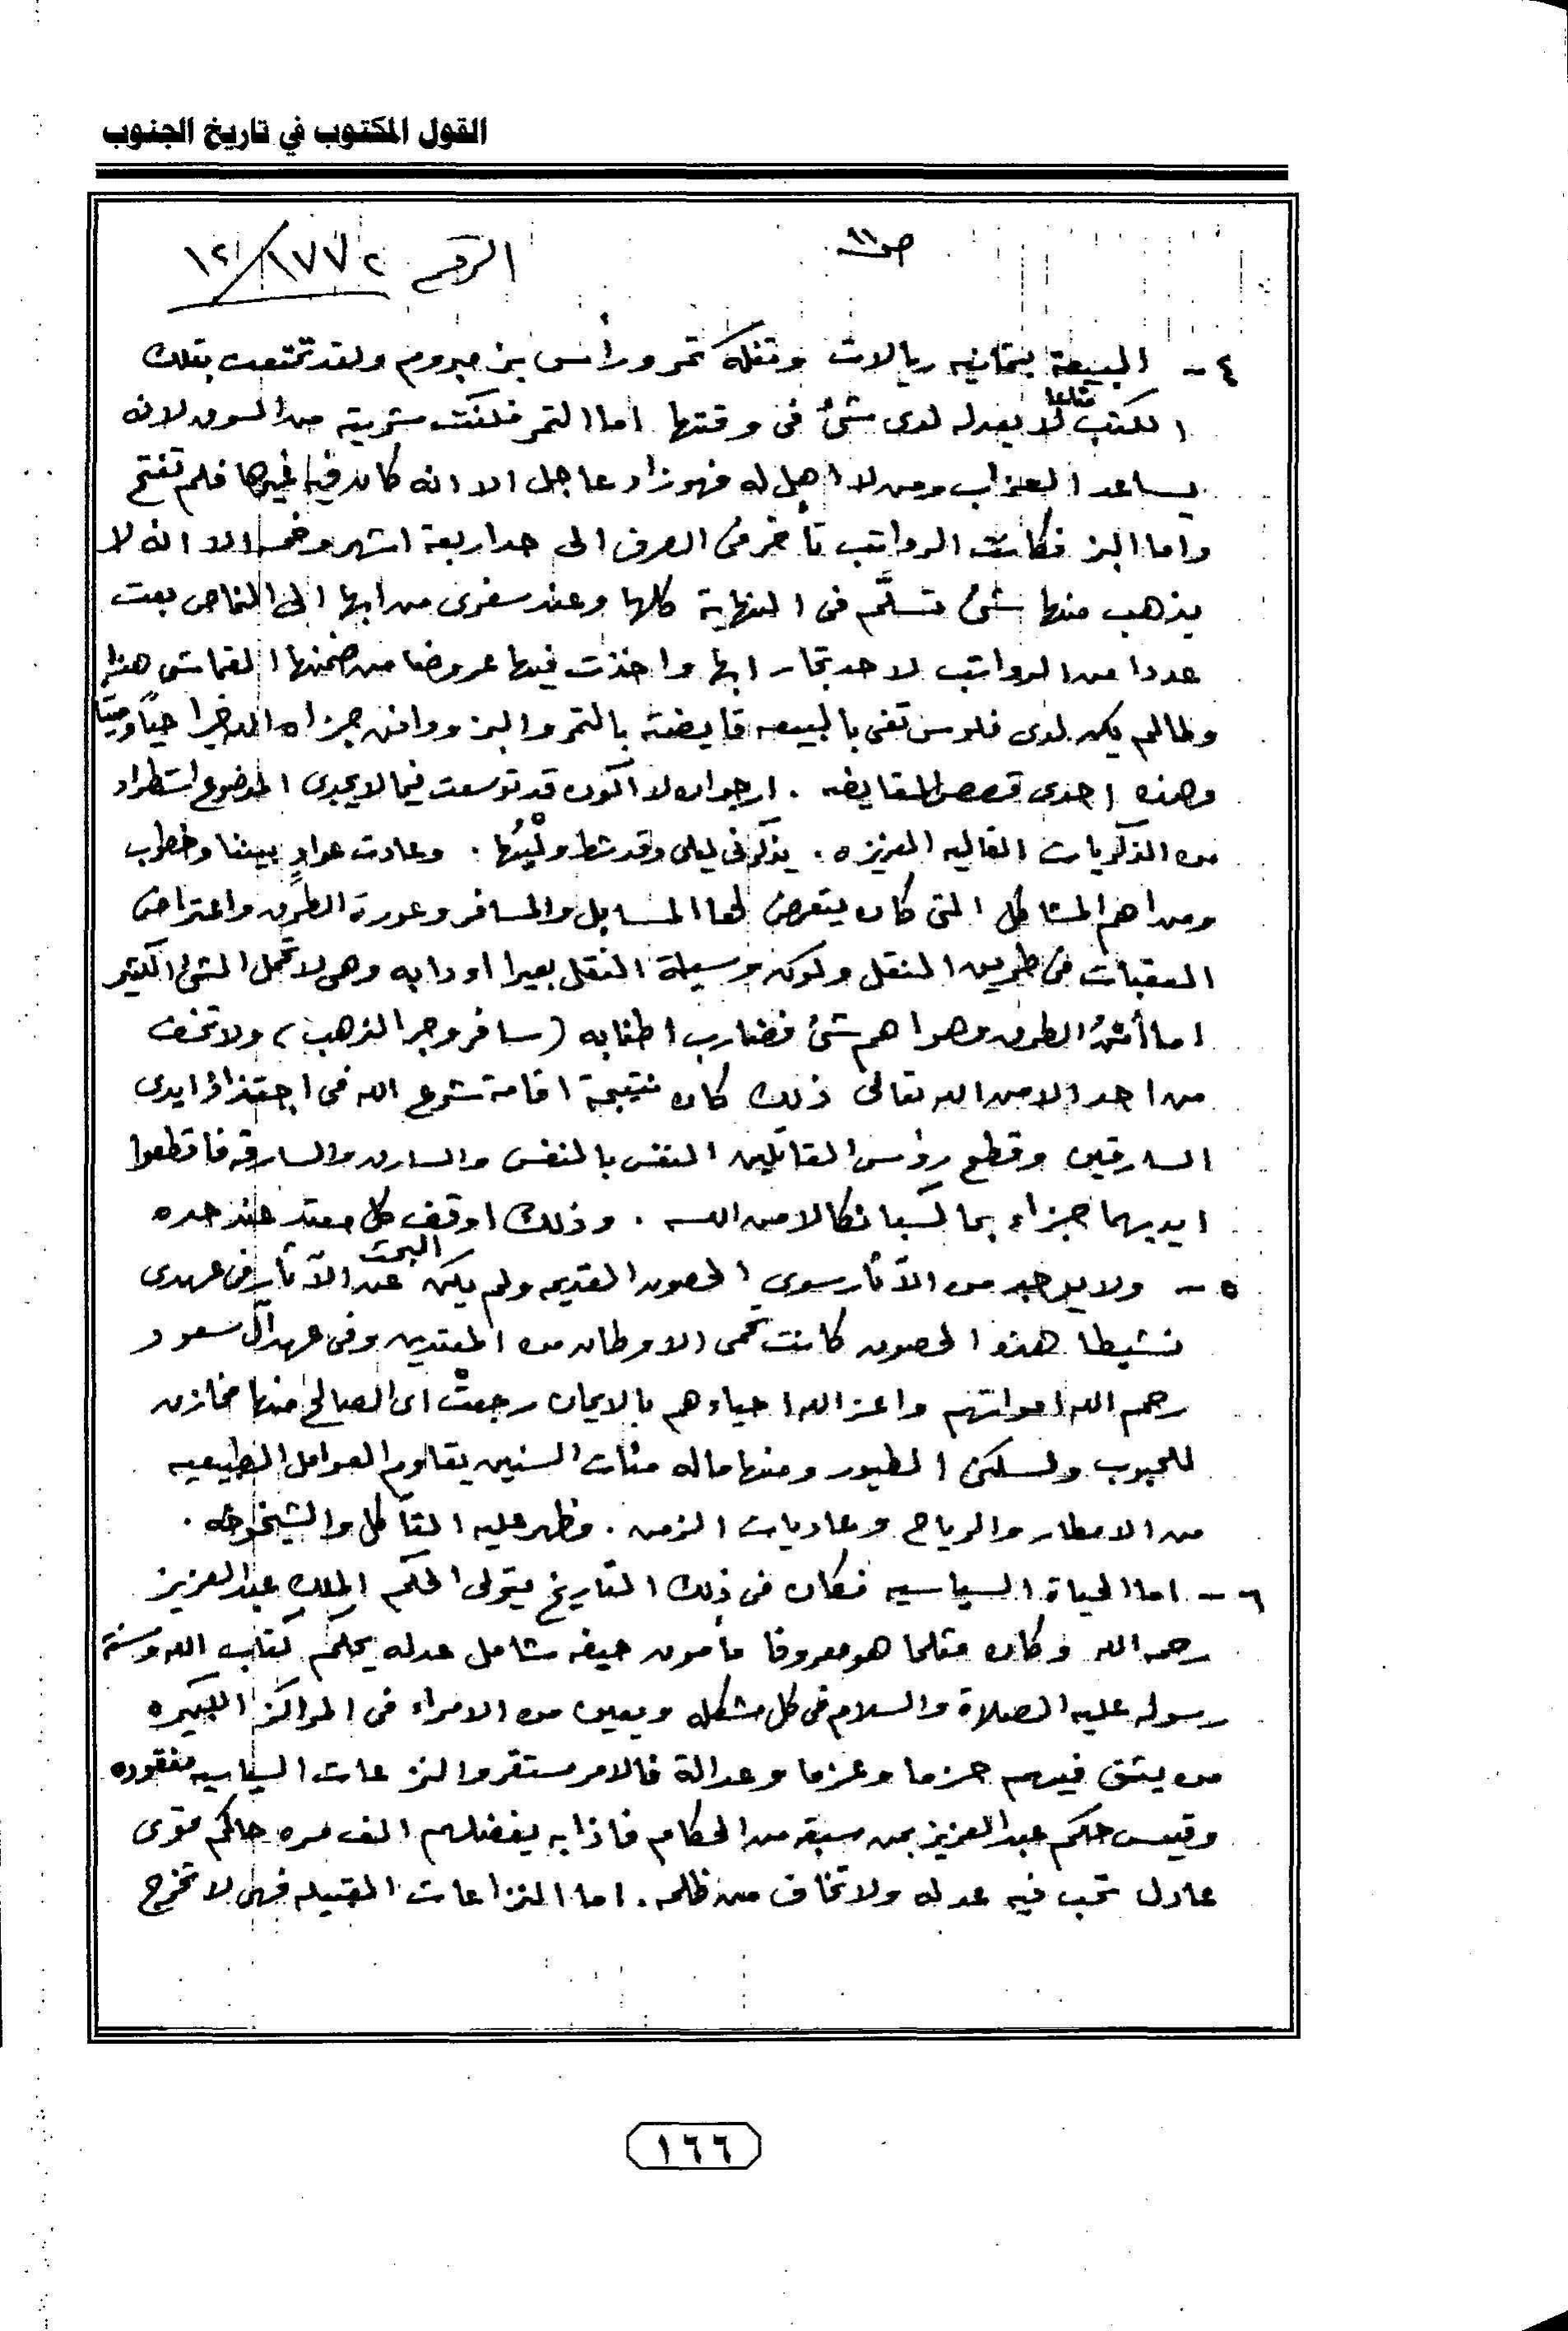 القول المكتوب في تاريخ الجنوب
ص١١
الرقم ١٢/١٧٧٢
٤ - البيعة بثمانيه ريالات وتنكة تمر ورأس بز مبروم ولقد تمتعت بتلك
الكتب متاعا لا يعدله لدى شئ فى وقتها اما التمر فكنت مشريته من السوق لانه
يساعد العزاب ومن لا اهل له فهو زاد عاجل الا انه كان فيه غيرها فلم تفتح
واما البز فكانت الرواتب تأخر فى الصرف الى حد اربعة اشهر وخمس الا انه لا
يذهب منها شئ تسلَّم فى النهاية كلها وعند سفرى من ابها الى النماص بعت
عددا من الرواتب لاحد تجار ابها واخذت فيها عروضا من ضمنها القماش هذا
ولما لم يكن لدى فلوس تفى بالبيعه قايضته بالتمر والبز ووافق جزاه الله خيرا حيًا وميتا
وهذه احدى قصص المقايضه . ارجو ان لا اكون قد توسعت فيما لا يجدى الموضوع استطراد
من الذكريات الغاليه العزيزه . يذكرنى ليلى وقد شط ولْيُها . وعادت عوادٍ بيننا وخطوب
ومن اهم المشاكل التى كان يتعرض لها المسابل والمسافر وعورة الطرق واعتراض
العقبات فى طريق المنقل ولكون وسيلة النقل بعيرا او دابه وهى لا تحمل الشئ الكثير
اما أمْنُ الطرق وهو اهم شئ فضارب اطنابه (سافر وجر الذهب) ولا تخف
من احد الا من الله تعالى ذلك كان نتيجة اقامة شرع الله فى اجتذاذ ايدى
السارقين وقطع رؤس القاتلين النفس بالنفس والسارق والسارقه فاقطعوا
ايديهما جزاء بما كسبا نكالا من الله . وذلك اوقف كل معتد عند حده
٥ - ولا يوجد من الآثار سوى الحصون القديمه ولم يكن البحث عن الآثار فى عهدى
نشيطا هذه الحصون كانت تحمى الاوطان من المعتدين وفى عهد آل سعود
رحم الله امواتهم واعز الله احياءهم بالايمان رجعتْ اى الصالح منها مخازن
للحبوب ولسكن الطيور ومنها ماله مئات السنين يقاوم العوامل الطبيعيه
من الامطار والرياح وعاديات الزمن . وظهر عليه التآكل والشيخوخه .
٦ - اما الحياة السياسيه فكان فى ذلك التاريخ يتولى الحكم الملك عبدالعزيز
رحمه الله وكان مثلما هو معروفا مأمون حيفه شامل عدله يحكم كتاب الله وسنة
رسوله عليه الصلاة والسلام فى كل مشكله ويعين من الامراء فى المراكز الكبيره
من يثق فيهم حزما وعزما وعدالة فالامر مستقر والنزعات السياسيه مفقوده
وقيس حكم عبدالعزيز بمن سبقه من الحكام فاذا به يفضلهم الف مره حاكم قوى
عادل تحب فيه عدله ولا تخاف من ظلمه . اما النزاعات القبيله فهى لا تخرج
١٦٦